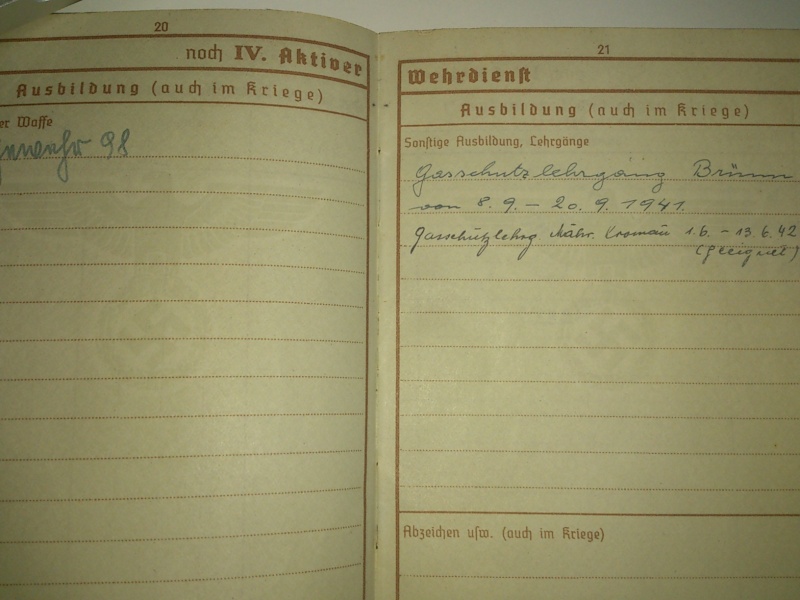 20
noch IV. Aktiver
Ausbildung (auch im Kriege)
er Waffe
gewehr 98
21
Wehrdienst
Ausbildung (auch im Kriege)
Sonstige Ausbildung, Lehrgänge
Gasschutzlehrgang Brünn
von 8. 9. – 20. 9. 1941.
Gasschutzlehrg Mähr. Kromau 1.6. – 13.6.42
(geeignet)
Abzeichen usw. (auch im Kriege)